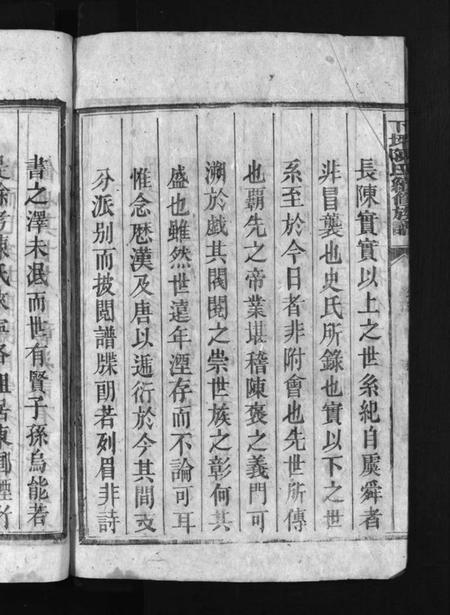 下坪陳氏續修族譜
長陳實實以上之世系紀自虞舜者
非冒襲也史氏所錄也實以下之世
系至於今日者非附會也先世所傳
也霸先之帝業堪稽陳褒之義門可
溯於戲其閥閱之崇世族之彰何其
盛也雖然世遠年湮存而不論可耳
惟念歷漢及唐以遞衍於今其間支
分派別而披閱譜牒朗若列眉非詩
書之澤未泯而世有賢子孫烏能若